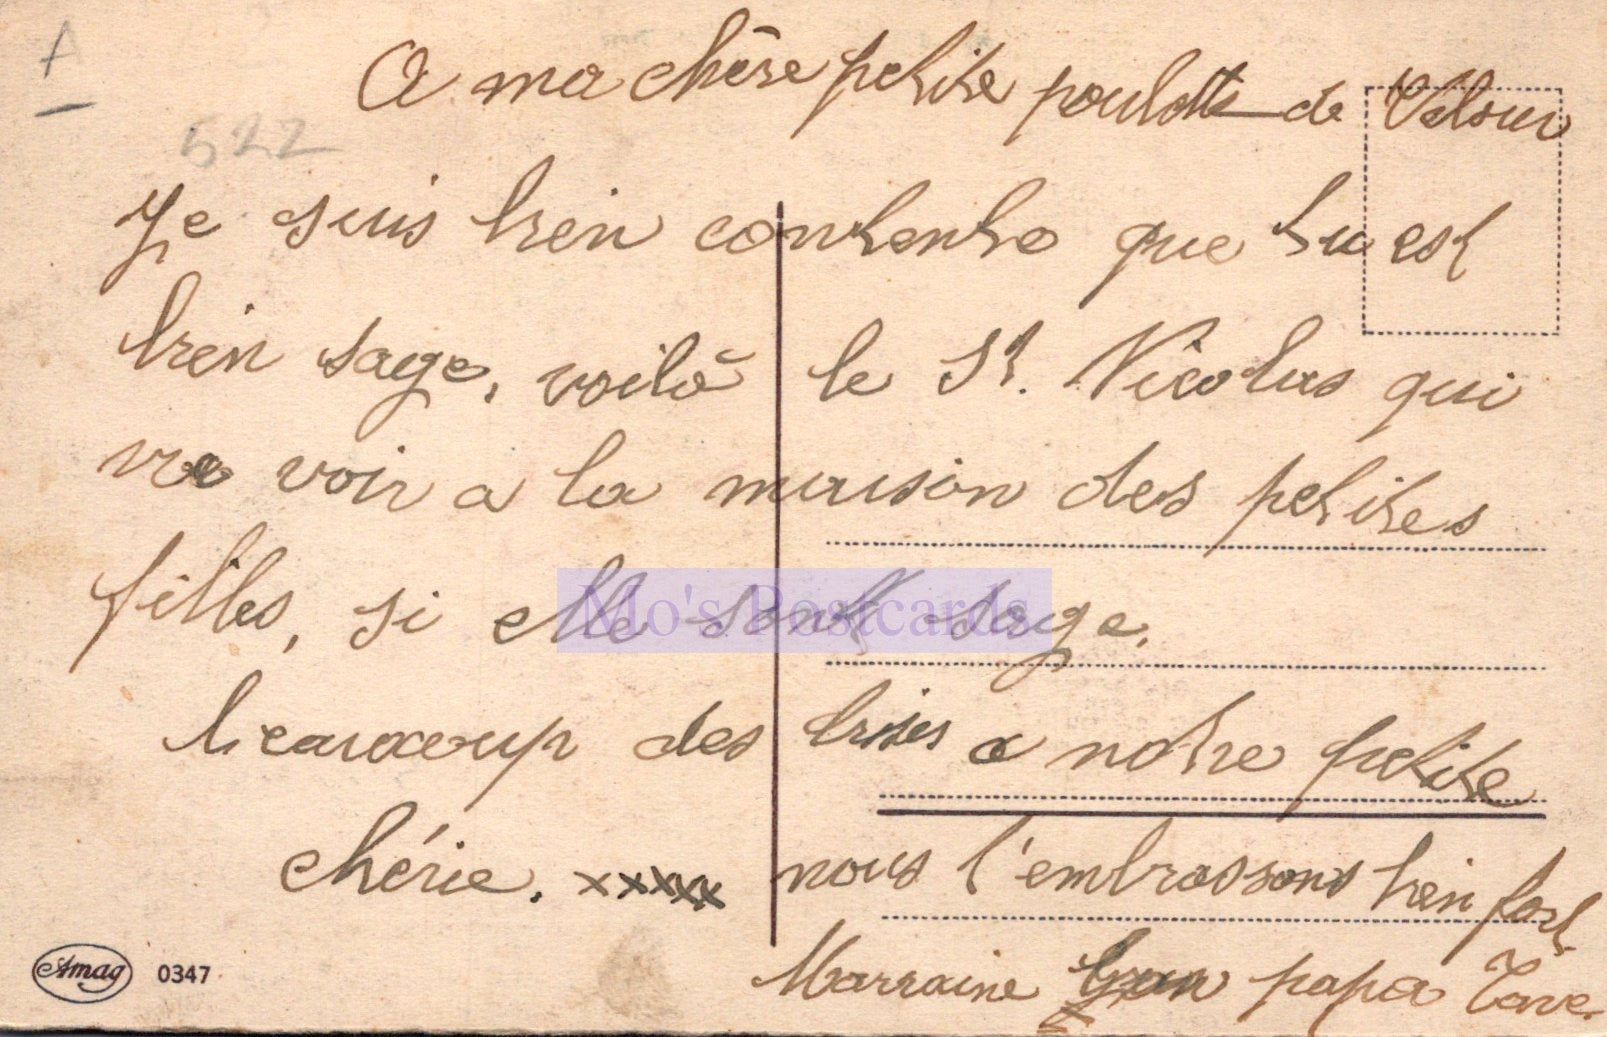 A
522
A ma chère petite poulette de
Je suis bien contente que tu est
bien sage, voilà le St. Nicolas qui
va voir a la maison des petites
filles, si elle sont sage.
Mo's Postcards
beaucoup des bises a notre petite
chérie. xxxxx nous l'embrassons bien fort
Marraine papa
Amag 0347